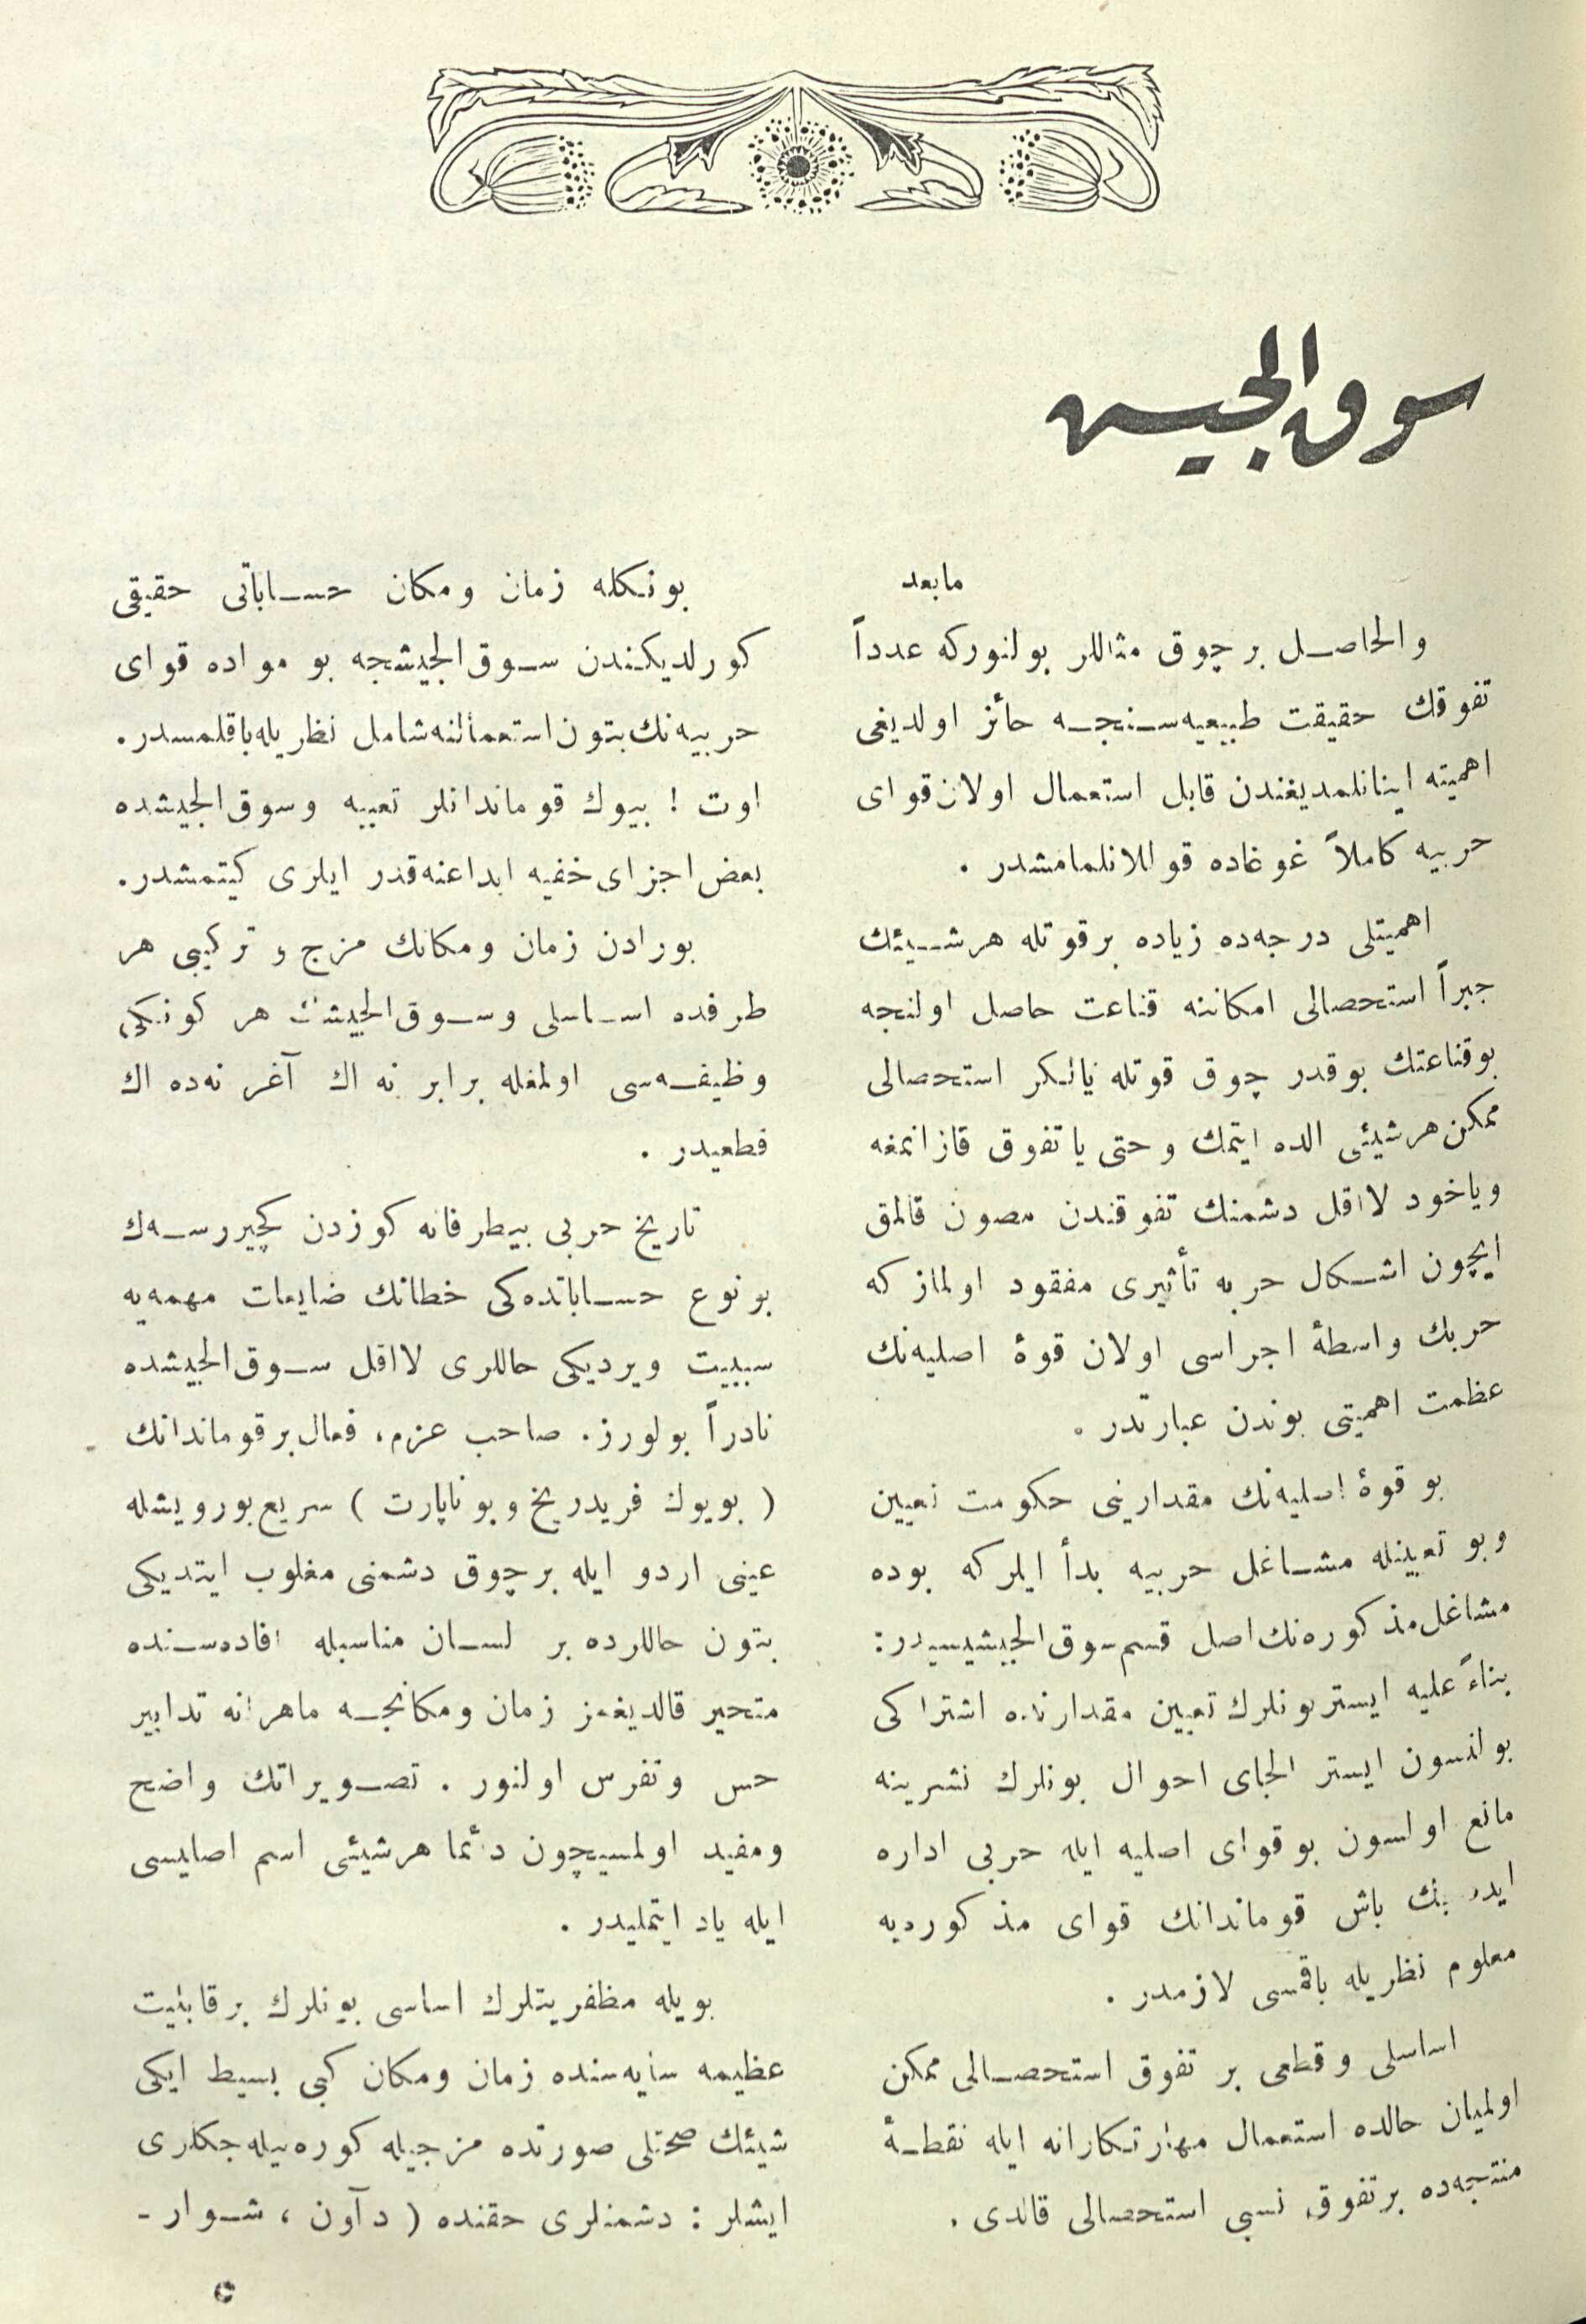 سوق الجيش
مابعد
والحاصل برچوق مثاللر بولنوركه عدداً
تفوقك حقيقت طبيعيه‌سنجه حائز اولديغى
اهميته اينانلمديغندن قابل استعمال اولان قواى
حربيه كاملاً غوغاده قوللانلمامشدر .
اهميتلى درجه‌ده زياده برقوتله هرشيئك
جبراً استحصالى امكاننه قناعت حاصل اولنجه
بوقناعتك بوقدر چوق قوتله يالكز استحصالى
ممكن هرشيئى الده ايتمك وحتى يا تفوق قازانمغه
وياخود لااقل دشمنك تفوقندن مصون قالمق
ايچون اشكال حربه تأثيرى مفقود اولماز كه
حربك واسطهٔ اجراسى اولان قوهٔ اصليه‌نك
عظمت اهميتى بوندن عبارتدر .
بو قوهٔ اصليه‌نك مقدارينى حكومت تعيين
وبو تعيينله مشاغل حربيه بدأ ايلر كه بوده
مشاغل مذكوره‌نك اصل قسم سوق الجيشيسيدر :
بناءً عليه ايستر بونلرك تعيين مقدارنده اشتراكى
بولنسون ايستر الجاى احوال بونلرك نشرينه
مانع اولسون بو قواى اصليه ايله حربى اداره
ايده‌جك باش قوماندانك قواى مذكوره‌يه
معلوم نظريله باقمسى لازمدر .
اساسلى وقطعى بر تفوق استحصالى ممكن
اولميان حالده استعمال مهارتكارانه ايله نقطهٔ
منتجه‌ده برتفوق نسبى استحصالى قالدى .
بونكله زمان ومكان حساباتى حقيقى
كورلديكندن سوق الجيشجه بو مواده قواى
حربيه‌نك بتون استعمالنه شامل نظريله باقلمسدر .
اوت ! بيوك قوماندانلر تعبيه وسوق الجيشده
بعض اجزاى خفيه ابداعنه قدر ايلرى كيتمشدر .
بورادن زمان ومكانك مزج و تركيبى هر
طرفده اساسلى وسوق الجيشك هر كونكى
وظيفه‌سى اولمغله برابر نه اك آغر نه‌ده اك
قطعيدر .
تاريخ حربى بيطرفانه كوزدن كچيررسه‌ك
بونوع حساباتده‌كى خطانك ضايعات مهمه‌يه
سببيت ويرديكى حاللرى لااقل سوق الجيشده
نادراً بولورز . صاحب عزم ، فعال برقوماندانك
( بويوك فريدريخ وبوناپارت ) سريع بورويشله
عينى اردو ايله برچوق دشمنى مغلوب ايتديكى
بتون حاللرده بر لسان مناسبله افاده‌سنده
متحير قالديغمز زمان ومكانجه ماهرانه تدابير
حس وتفرس اولنور . تصويراتك واضح
ومفيد اولمسيچون دائما هرشيئى اسم اصليسى
ايله ياد ايتمليدر .
بويله مظفريتلرك اساسى بونلرك برقابليت
عظيمه سايه‌سنده زمان ومكان كبى بسيط ايكى
شيئك صحتلى صورتده مزجيله كوره‌بيله‌جكلرى
ايشلر : دشمنلرى حقنده ( دآون ، شوار -